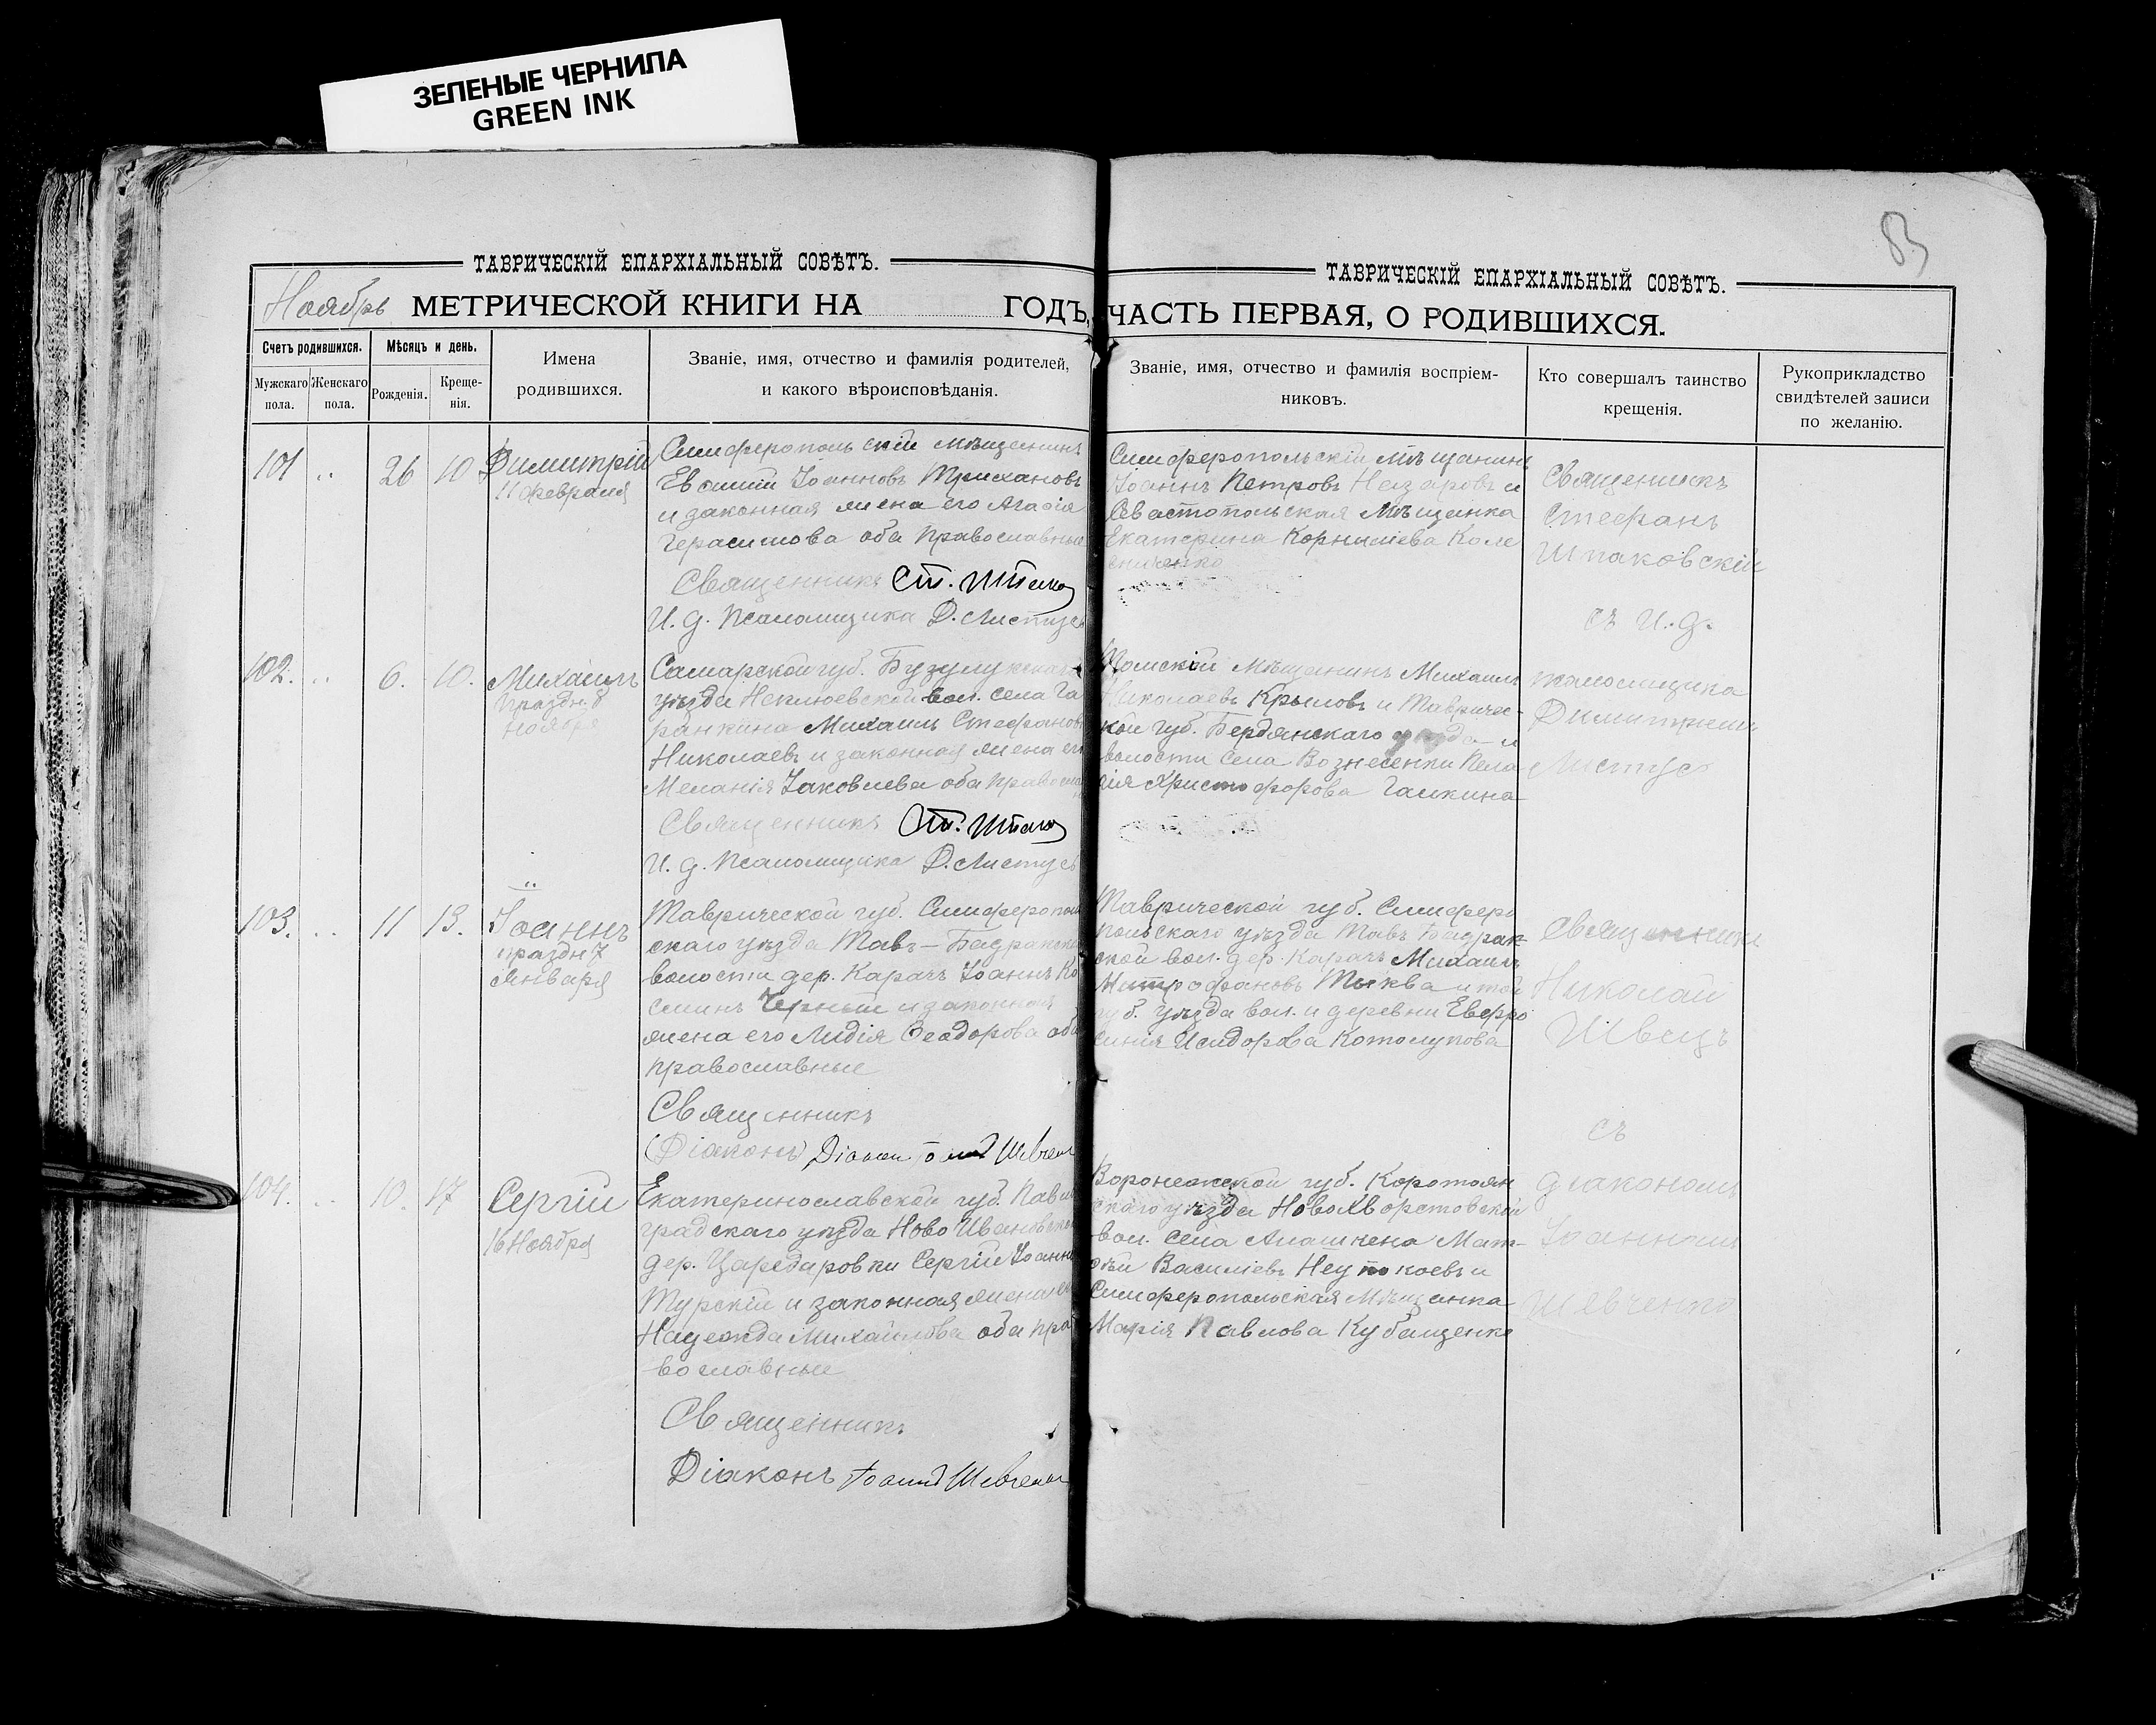 ЗЕЛЕНЫЕ ЧЕРНИЛА
GREEN INK
83
ТАВРИЧЕСКІЙ ЕПАРХІАЛЬНЫЙ СОВѢТЪ.
Ноябрь МЕТРИЧЕСКОЙ КНИГИ НА ГОДЪ,
Счетъ родившихся.
Мужскаго пола.
Женскаго пола.
Мѣсяцъ и день.
Рожденія.
Креще-
нія.
Имена
родившихся.
Званіе, имя, отчество и фамилія родителей,
и какого вѣроисповѣданія.
101 .. 26 10
Димитрій
11 февраля
Симферопольскій мѣщанинъ
Іоанновъ
и законная жена его Агафія
Герасимова оба православные
Священникъ Ст.
И. д. Псаломщика Д. Листусъ
102. .. 6. 10.
Михаилъ
праздн. 8
ноября
Самарской губ. Бузулукскаго
уѣзда вол. села Га
ранкина Михаилъ Стефановъ
Николаевъ и законная жена его
Меланія Іаковлева оба
Священникъ Ст.
И. д. Псаломщика Д. Листусъ
103. .. 11 13.
Іоаннъ
праздн 7
января
Таврической губ. Симферополь
скаго уѣзда Тавъ-
волости дер. Карачъ Іоаннъ Ко
сминъ Черный и законная
жена его Лидія Ѳеодорова оба
православные
Священникъ
Діаконъ Діакон
104. .. 10. 17
Сергій
16 Ноября
Екатеринославской губ. Павло
градскаго уѣзда Ново Ивановской
дер. Цареdаровки Сергій
Турскій и законная жена его
Надежда Михайлова оба пра
вославные
Священникъ
Діаконъ Іоаннъ Шевченко
ТАВРИЧЕСКІЙ ЕПАРХІАЛЬНЫЙ СОВѢТЪ.
ЧАСТЬ ПЕРВАЯ, О РОДИВШИХСЯ.
Званіе, имя, отчество и фамилія воспріем-
никовъ.
Кто совершалъ таинство
крещенія.
Рукоприкладство
свидѣтелей записи
по желанію.
Симферопольскій мѣщанинъ
Іоаннъ Петровъ Назаровъ и
Севастопольская мѣщанка
Екатерина Корниліева Коле
сниченко
Священникъ
Стефанъ
Шпаковскій
съ И. д.
Томскій мѣщанинъ Михаилъ
Николаевъ Крыловъ и Тавричес-
кой губ. Бердянскаго уѣзда и
волости села Вознесенки Пела
гія Христофорова Галкина
псаломщика
Димитріемъ
Листусъ
Таврической губ. Симферо
польскаго уѣзда Тавъ
ской вол. дер. Карачъ Михаилъ
Митрофановъ Тыква и той
губ. уѣзда вол. и деревни Евфро
синія Исидорова Котолупова
Священникъ
Николай
Швецъ
съ
Воронежской губ. Коротояк
скаго уѣзда
вол. села Мат-
ѳей Василіевъ Неупокоевъ и
Симферопольская мѣщанка
Марія Павлова
діакономъ
Іоанномъ
Шевченко